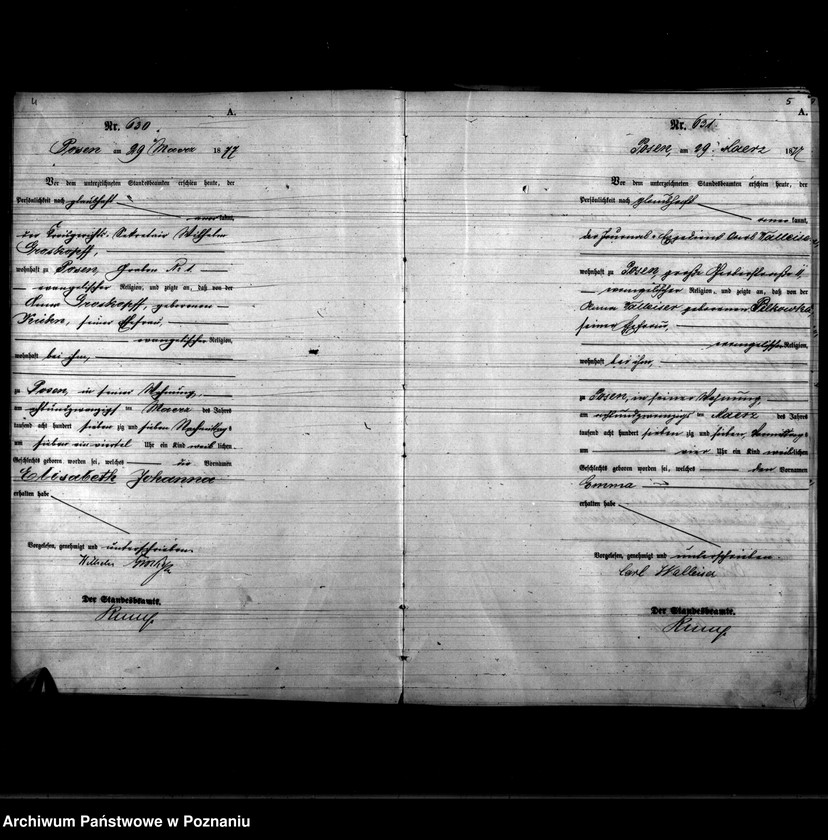 4
A.
Nr. 630
Posen am 29 Maerz 1877
Vor dem unterzeichneten Standesbeamten erschien heute, der
Persönlichkeit nach glaubhaft
kannt,
der Kreisgerichts Sekretair Wilhelm
Groskopff,
wohnhaft zu Posen, Graben
evangelischer Religion, und zeigte an, daß von der
Anna Groskopff, geborenen
Kuehn, seiner Ehefrau,
evangelischer Religion,
wohnhaft bei ihm,
zu Posen, in seiner Wohnung,
am achtundzwanzigst en Maerz des Jahres
tausend acht hundert sieben zig und sieben Nachmittags
um sieben ein viertel Uhr ein Kind weib lichen
Geschlechts geboren worden sei, welches die Vornamen
Elisabeth Johanna
erhalten habe
Vorgelesen, genehmigt und unterschrieben.
Wilhelm
Der Standesbeamte.
5
A.
Nr. 631
Posen, am 29 Maerz 1877
Vor dem unterzeichneten Standesbeamten erschien heute, der
Persönlichkeit nach glaubhaft
kannt,
der Journal Expedient Carl Walleiser
wohnhaft zu Posen, große
evangelischer Religion, und zeigte an, daß von der
Walleiser geborenen
seiner Ehefrau,
evangelischer Religion,
wohnhaft bei ihm,
zu Posen, in seiner Wohnung
am achtundzwanzigst en Maerz des Jahres
tausend acht hundert sieben zig und sieben, Vormittags
um vier Uhr ein Kind weiblichen
Geschlechts geboren worden sei, welches den Vornamen
Emma
erhalten habe
Vorgelesen, genehmigt und unterschrieben.
Carl Walleiser
Der Standesbeamte.
Archiwum Państwowe w Poznaniu